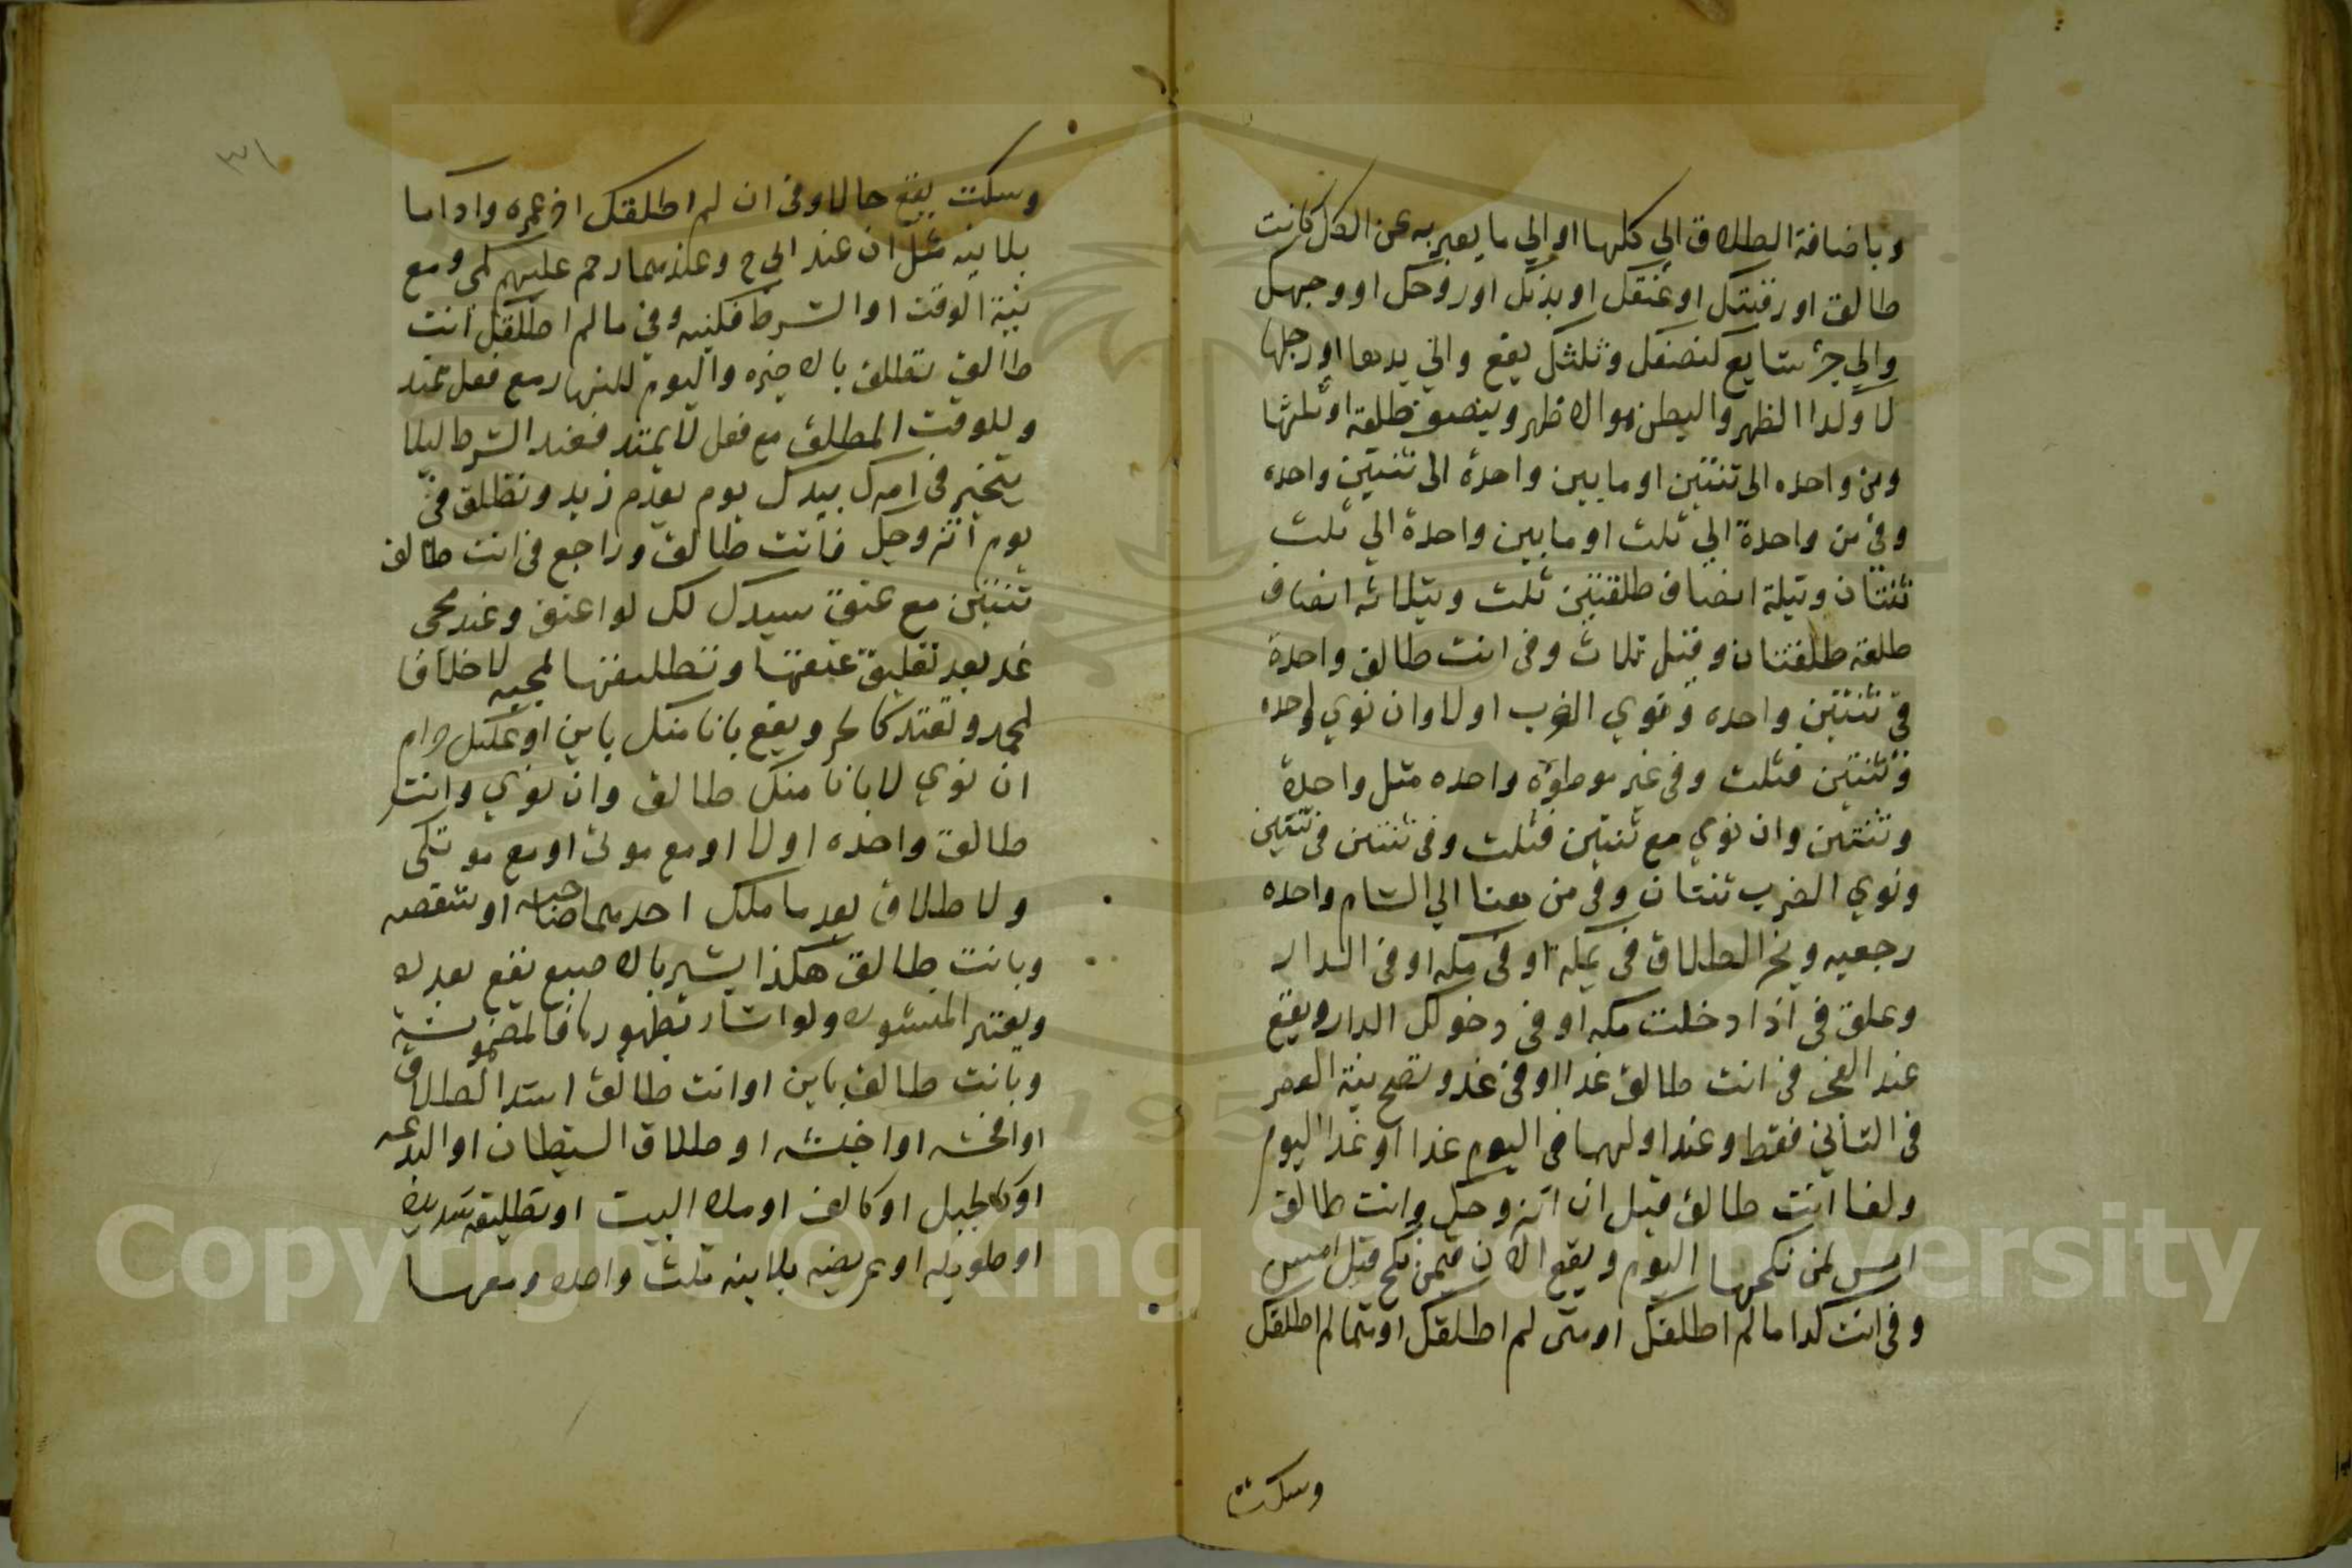 وباضافة الطلاق الي كلها او الي ما يعبر به عن الكل كانت
طالق او رقبتك او عنقك او بدنك او روحك او وجهك
والي جزء شايع كنصفك وثلثك يقع والي يدها او رجلها
لا وكذا الظهر والبطن هو الاظهر وبنصف طلقة او ثلثها
ومن واحده الى ثنتين او ما بين واحدة الى ثنتين واحده
وفي من واحدة الي ثلث او ما بين واحدة الي ثلث
ثنتان وبثلثة انصاف طلقتين ثلث وبثلاثه انصاف
طلقة طلقتان وقيل ثلاث وفي انت طالق واحدة
في ثنتين واحده ونوي الضرب اولا وان نوي واحده
وثنتين فثلث وفي غير موطوءة واحده مثل واحدة
وثنتين وان نوي مع ثنتين فثلث وفي ثنتين في ثنتين
ونوي الضرب ثنتان وفي من هنا الي الشام واحده
رجعيه ونجز الطلاق في بمكة او في مكه او في الدار
وعلق في اذا دخلت مكه او في دخولك الدار ويقع
عند الفجر في انت طالق غدا او في غد وتصح نية العصر
في الثاني فقط وعند اولهما في اليوم غدا او غدا اليوم
ولغا انت طالق قبل ان اتزوجك وانت طالق
امس لمن نكحها اليوم ويقع الان فيمن نكح قبل امس
وفي انت كذا ما لم اطلقك او متى لم اطلقك او متى ما لم اطلقك
وسكت
٣١
وسكت يقع حالا وفي ان لم اطلقك اخر عمره واذا ما
بلا نيه مثل ان عند ابي ح وعندهما رحم عليهم كمتى ومع
نية الوقت او الشرط فكنيته وفي ما لم اطلقك انت
طالق تطلق بالاخيره واليوم للنهار مع فعل يمتد
وللوقت المطلق مع فعل لا يمتد فعند الشرط ليلا
يتخير في امرك بيدك يوم يقدم زيد وتطلق في
يوم اتزوجك فانت طالق وراجع في انت طالق
ثنتين مع عتق سيدك لك لو اعتق وعند مجي
غد بعد تعليق عتقها وتطليقها لمجيه لا خلافا
لمحمد وتعتد كالحر ويقع بانا منك باين او عليك حرام
ان نوي لا بانا منك طالق وان نوي وانت
طالق واحده اولا او مع موتي او مع موتك
ولا طلاق بعد ما ملك احدهما صاحبه او شقصه
وبانت طالق هكذا يشير بالاصبع يقع بعدده
ويعتبر المنشوره ولو اشار بظهورها فالمضمومة
وبانت طالق باين او انت طالق اشد الطلاق
او افحشه او اخبثه او طلاق الشيطان او البدعه
او كالجبل او كالف او ملء البيت او تطليقة شديدة
او طويله او عريضه بلا نيه ثلث واحده ومعها